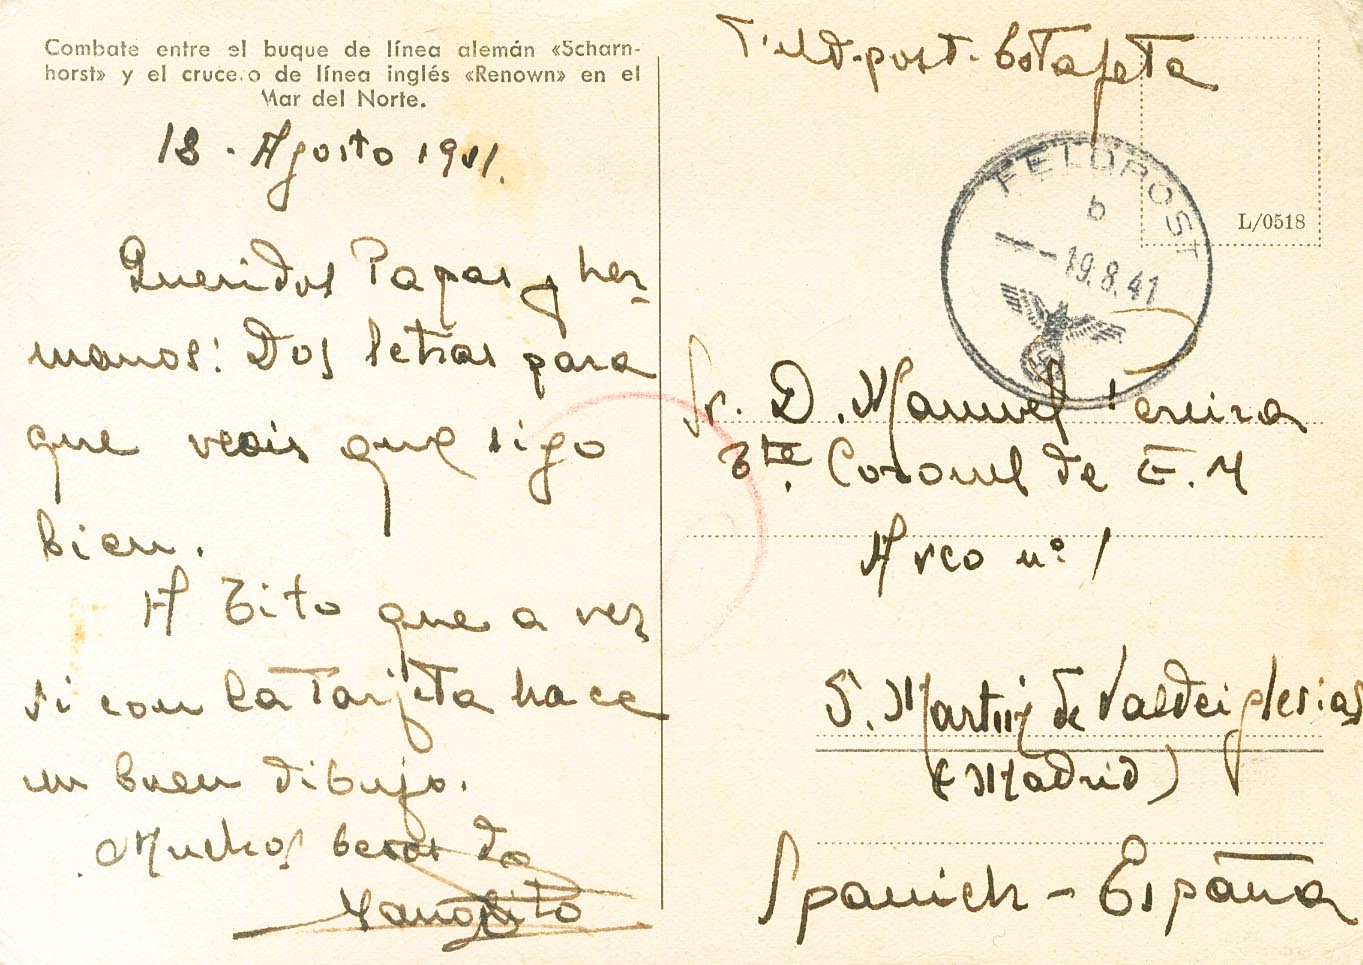 Combate entre el buque de línea alemán «Scharn-
horst» y el crucero de línea inglés «Renown» en el
Mar del Norte.
18 - Agosto 1941.
Queridos Papas y her-
manos: Dos letras para
que veais que sigo
bien.
A Tito que a ver
si con la tarjeta hace
un buen dibujo.
Muchos besos de
Manolito
Feld-post-Estafeta
L/0518
FELDPOST
b
19.8.41
Sr. D. Manuel Tereira
Tte. Coronel de E. M
Arco nº 1
S. Martin de Valdeiglesias
(Madrid)
Spanich - España